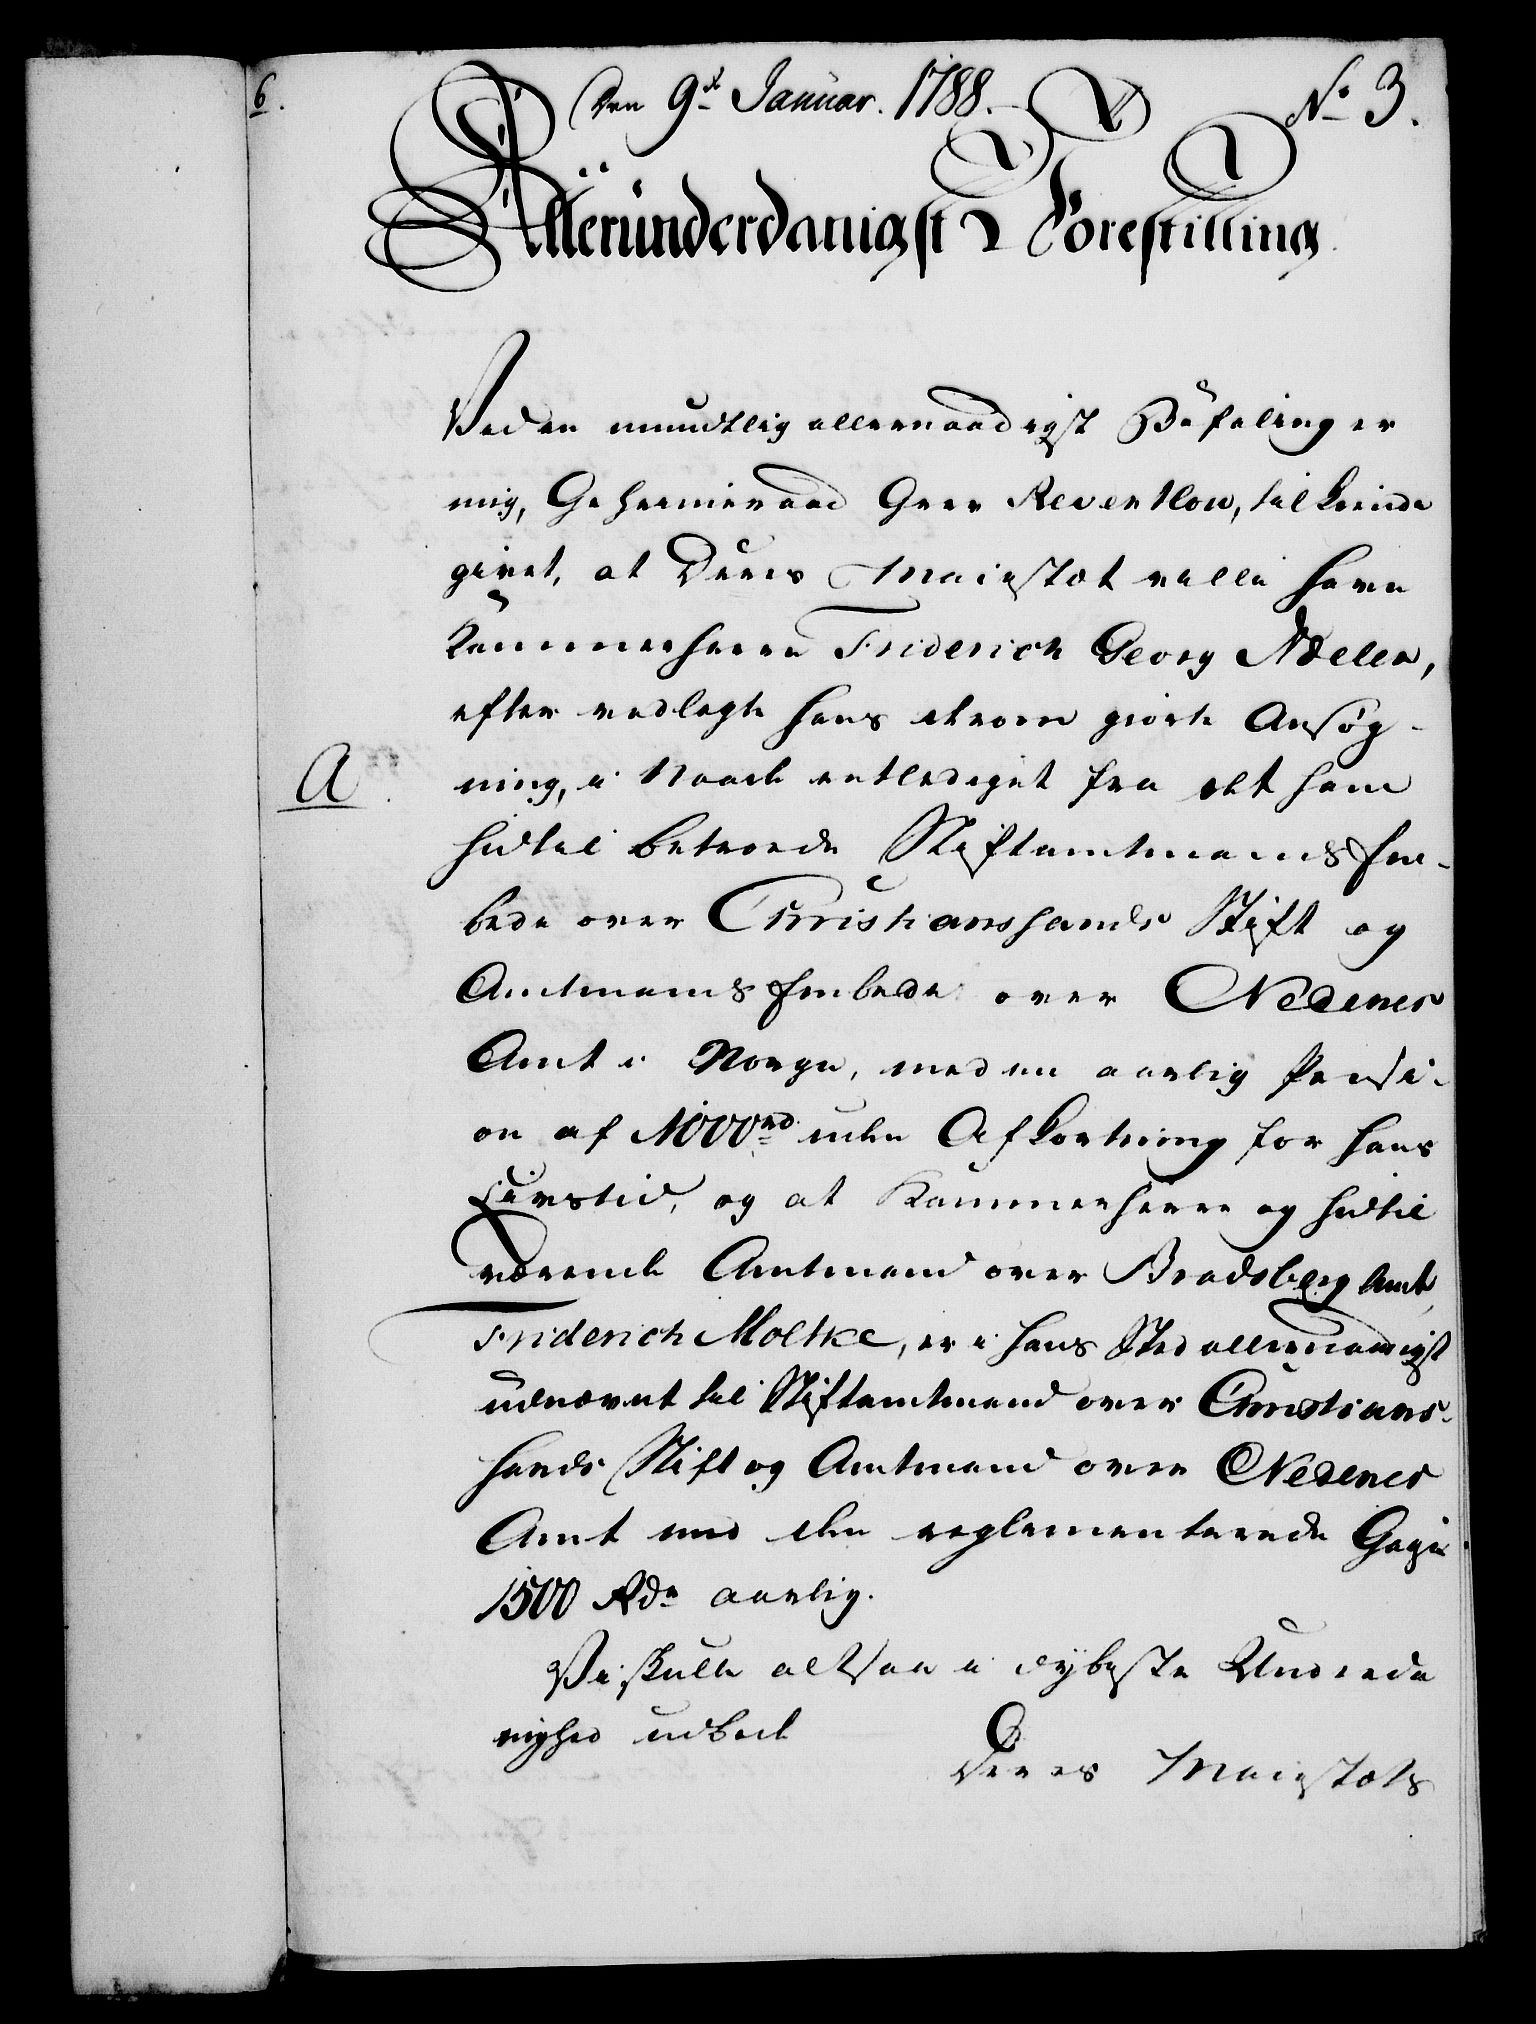 6.
Den 9de Januar. 1788.
No 3.
Allerunderdanigst Forestilling.
Ved en mundtlig allernaadigst Befaling er
mig, Geheimeraad Grev Reventlow, tilkiende
givet, at Deres Maiestæt ville have
Kammerherre Friderich Georg Adeler,
efter vedlagte hans derom giorte Ansøg-
A.
ning, i Naade entlediget fra det ham
hidtil betroede Stiftamtmands Em-
bede over Christianssands Stift og
Amtmands Embede over Nedenes
Amt i Norge, med en aarlig Pensi-
on af 1000 rd uden Afkortning for hans
Livstid, og at Kammerherre og hidtil
værende Amtmand over Bradsberg Amt,
Friderich Moltke, er i hans Sted allernaadigst
udnævnt til Stiftamtmand over Christians-
sands Stift og Amtmand over Nedenes
Amt med den reglementerede Gage
1500 Rdr aarlig.
Vi skulle altsaa i dybeste Underda
nighed udbede
Deres Maiestæts